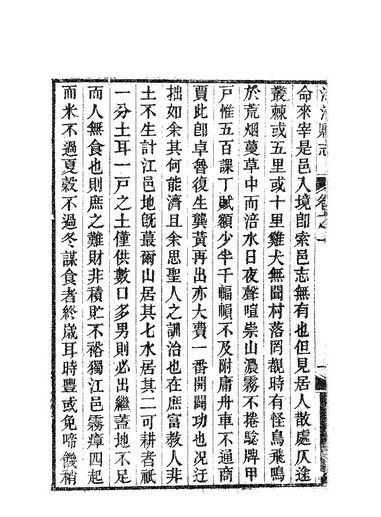 命來宰是邑入境卽索邑志無有也但見居人散處仄途
叢棘或五里或十里雞犬無聞村落罔覯時有怪鳥飛鳴
於荒烟蔓草中而涪水日夜聲喧崇山濃霧不捲驗牌甲
戸惟五百課丁賦額少半千幅幀不及附庸舟車不通商
賈此卽卓魯復生龔黃再出亦大費一番開闢功也况迂
拙如余其何能濟且余思聖人之訓治也在庶富敎人非
土不生計江邑地旣蕞爾山居其七水居其二可耕者祇
一分土耳一戸之土僅供數口多男則必出繼蓋地不足
而人無食也則庶之難財非積貯不裕獨江邑霧瘴四起
而米不過夏穀不過冬謀食者終歲耳時豐或免啼饑稍